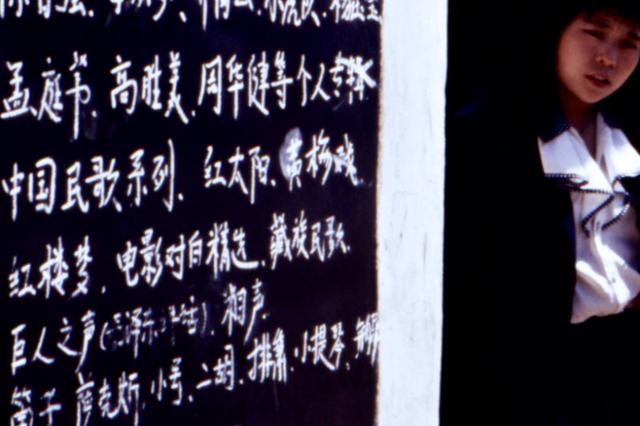 孟庭苇、高胜美、周华健等个人专辑
中国民歌系列、红太阳、黄梅戏、
红楼梦、电影对白精选、藏族民歌、
巨人之声(毛泽东讲话)、相声、
笛子、萨克斯、小号、二胡、排箫、小提琴、